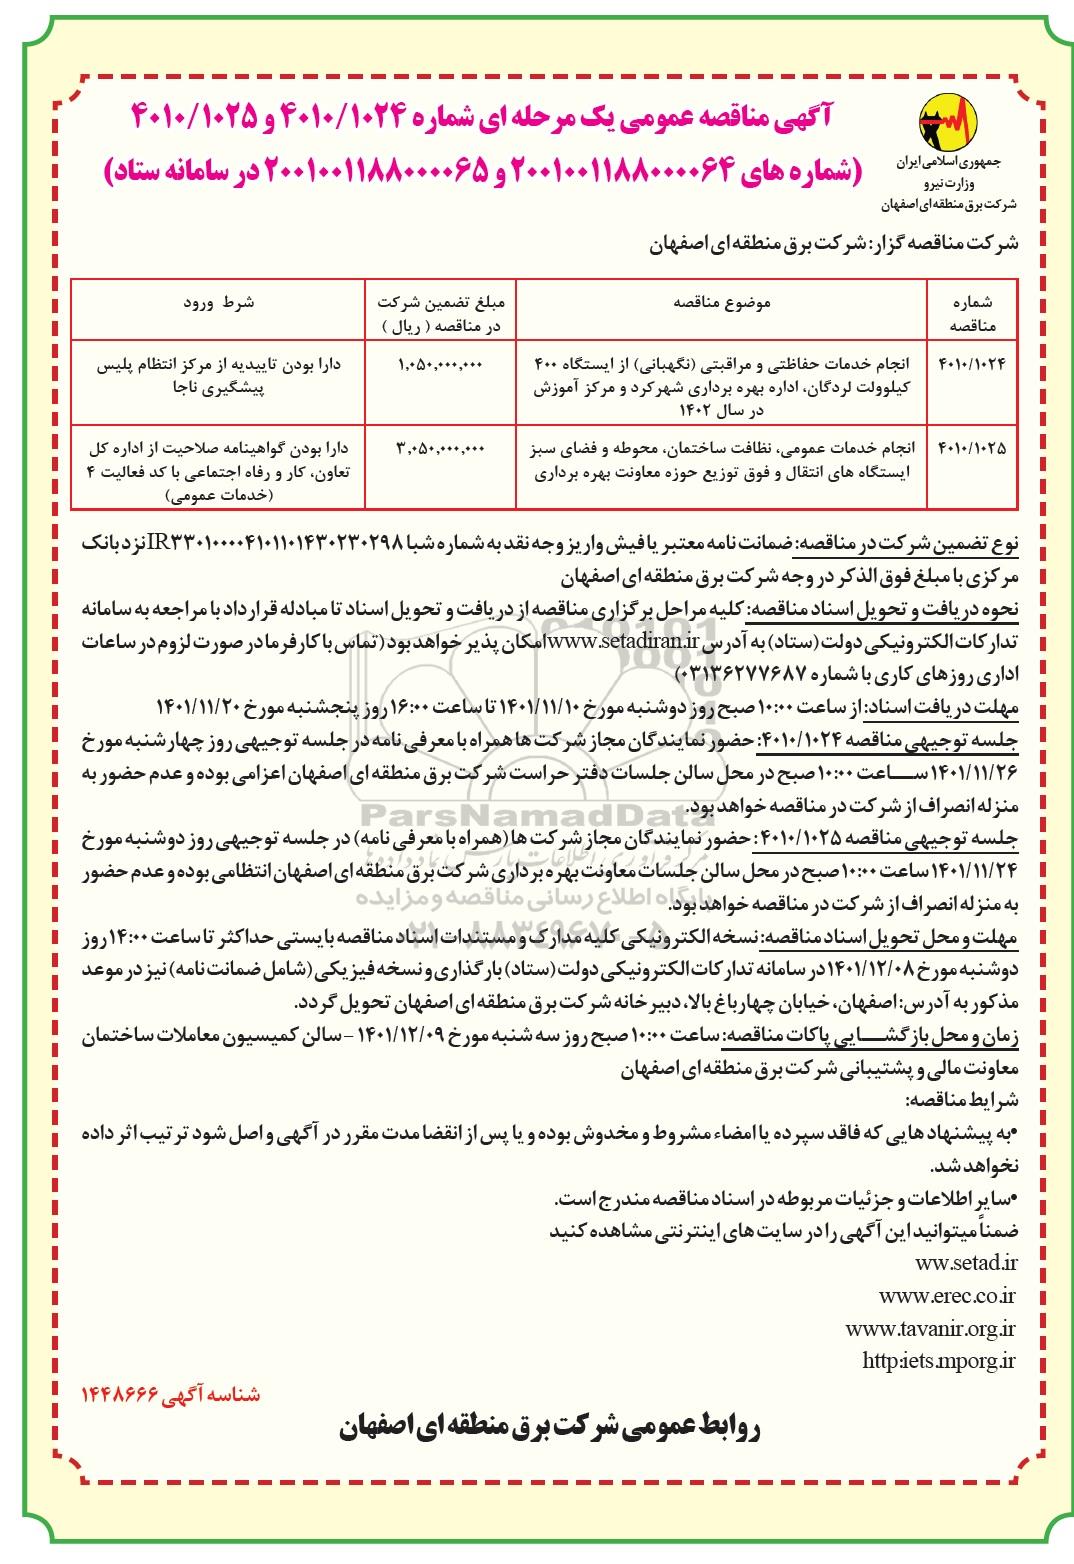 آگهی مناقصه عمومی یک مرحله ای شماره ۴۰۱۰/۱۰۲۴ و ۴۰۱۰/۱۰۲۵
(شماره های ۲۰۰۱۰۰۱۱۸۸۰۰۰۰۶۴ و ۲۰۰۱۰۰۱۱۸۸۰۰۰۰۶۵ در سامانه ستاد)
جمهوری اسلامی ایران
وزارت نیرو
شرکت برق منطقه ای اصفهان
شرکت مناقصه گزار: شرکت برق منطقه ای اصفهان
شماره مناقصه
موضوع مناقصه
مبلغ تضمین شرکت
در مناقصه ( ریال )
شرط ورود
۴۰۱۰/۱۰۲۴
انجام خدمات حفاظتی و مراقبتی (نگهبانی) از ایستگاه ۴۰۰
کیلوولت لردگان، اداره بهره برداری شهرکرد و مرکز آموزش
در سال ۱۴۰۲
۱,۰۵۰,۰۰۰,۰۰۰
دارا بودن تاییدیه از مرکز انتظام پلیس
پیشگیری ناجا
۴۰۱۰/۱۰۲۵
انجام خدمات عمومی، نظافت ساختمان، محوطه و فضای سبز
ایستگاه های انتقال و فوق توزیع حوزه معاونت بهره برداری
۳,۰۵۰,۰۰۰,۰۰۰
دارا بودن گواهینامه صلاحیت از اداره کل
تعاون، کار و رفاه اجتماعی با کد فعالیت ۴
(خدمات عمومی)
نوع تضمین شرکت در مناقصه: ضمانت نامه معتبر یا فیش واریز وجه نقد به شماره شبا IR۳۳۰۱۰۰۰۰۴۱۰۱۱۰۱۴۳۰۲۳۰۲۹۸ نزد بانک
مرکزی با مبلغ فوق الذکر در وجه شرکت برق منطقه ای اصفهان
نحوه دریافت و تحویل اسناد مناقصه: کلیه مراحل برگزاری مناقصه از دریافت و تحویل اسناد تا مبادله قرارداد با مراجعه به سامانه
تدارکات الکترونیکی دولت (ستاد) به آدرس www.setadiran.ir امکان پذیر خواهد بود (تماس با کارفرما در صورت لزوم در ساعات
اداری روزهای کاری با شماره ۰۳۱۳۶۲۷۷۶۸۷)
مهلت دریافت اسناد: از ساعت ۱۰:۰۰ صبح روز دوشنبه مورخ ۱۴۰۱/۱۱/۱۰ تا ساعت ۱۶:۰۰ روز پنجشنبه مورخ ۱۴۰۱/۱۱/۲۰
جلسه توجیهی مناقصه ۴۰۱۰/۱۰۲۴: حضور نمایندگان مجاز شرکت ها همراه با معرفی نامه در جلسه توجیهی روز چهارشنبه مورخ
۱۴۰۱/۱۱/۲۶ ســـاعت ۱۰:۰۰ صبح در محل سالن جلسات دفتر حراست شرکت برق منطقه ای اصفهان اعزامی بوده و عدم حضور به
منزله انصراف از شرکت در مناقصه خواهد بود.
جلسه توجیهی مناقصه ۴۰۱۰/۱۰۲۵ : حضور نمایندگان مجاز شرکت ها (همراه با معرفی نامه) در جلسه توجیهی روز دوشنبه مورخ
۱۴۰۱/۱۱/۲۴ ساعت ۱۰:۰۰ صبح در محل سالن جلسات معاونت بهره برداری شرکت برق منطقه ای اصفهان انتظامی بوده و عدم حضور
به منزله انصراف از شرکت در مناقصه خواهد بود.
مهلت و محل تحویل اسناد مناقصه: نسخه الکترونیکی کلیه مدارک و مستندات اسناد مناقصه بایستی حداکثر تا ساعت ۱۴:۰۰ روز
دوشنبه مورخ ۱۴۰۱/۱۲/۰۸ در سامانه تدارکات الکترونیکی دولت (ستاد) بارگذاری و نسخه فیزیکی (شامل ضمانت نامه) نیز در موعد
مذکور به آدرس: اصفهان، خیابان چهارباغ بالا، دبیرخانه شرکت برق منطقه ای اصفهان تحویل گردد.
زمان و محل بازگشـــایی پاکات مناقصه: ساعت ۱۰:۰۰ صبح روز سه شنبه مورخ ۱۴۰۱/۱۲/۰۹ – سالن کمیسیون معاملات ساختمان
معاونت مالی و پشتیبانی شرکت برق منطقه ای اصفهان
شرایط مناقصه:
•به پیشنهاد هایی که فاقد سپرده یا امضاء مشروط و مخدوش بوده و یا پس از انقضا مدت مقرر در آگهی و اصل شود ترتیب اثر داده
نخواهد شد.
•سایر اطلاعات و جزئیات مربوطه در اسناد مناقصه مندرج است.
ضمناً میتوانید این آگهی را در سایت های اینترنتی مشاهده کنید
ww.setad.ir
www.erec.co.ir
www.tavanir.org.ir
http:iets.mporg.ir
شناسه آگهی ۱۴۴۸۶۶۶
روابط عمومی شرکت برق منطقه ای اصفهان
ParsNamadData
پایگاه اطلاع رسانی مناقصه و مزایده